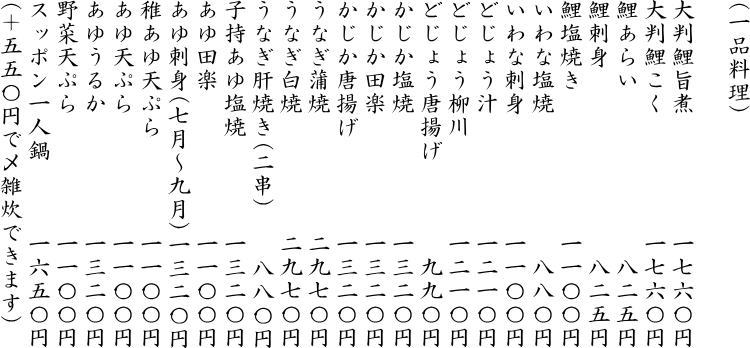 （一品料理）
大判鯉旨煮 一七六〇円
大判鯉こく 一七六〇円
鯉あらい 八二五円
鯉刺身 八二五円
鯉塩焼き 一一〇〇円
いわな塩焼 八八〇円
いわな刺身 一一〇〇円
どじょう汁 一二一〇円
どじょう柳川 一二一〇円
どじょう唐揚げ 九九〇円
かじか塩焼 一三二〇円
かじか田楽 一三二〇円
かじか唐揚げ 一三二〇円
うなぎ蒲焼 二九七〇円
うなぎ白焼 二九七〇円
うなぎ肝焼き（二串） 八八〇円
子持あゆ塩焼 一三二〇円
あゆ田楽 一一〇〇円
あゆ刺身（七月～九月）一三二〇円
稚あゆ天ぷら 一一〇〇円
あゆ天ぷら 一一〇〇円
あゆうるか 一三二〇円
野菜天ぷら 一一〇〇円
スッポン一人鍋 一六五〇円
（＋五五〇円で〆雑炊できます）